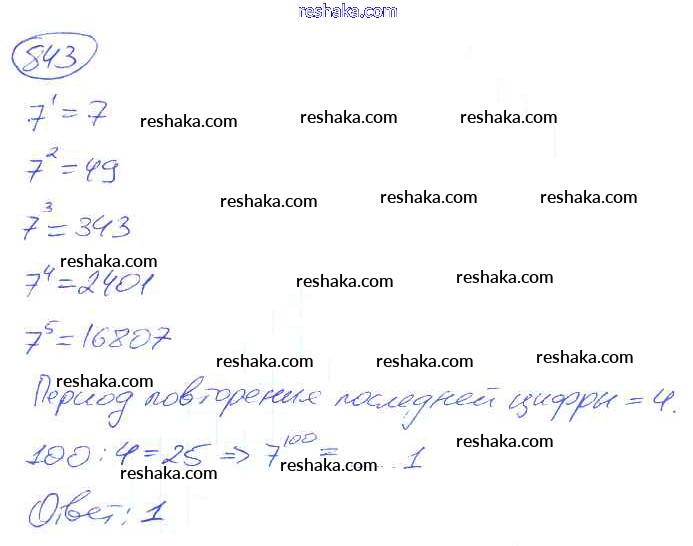 reshaka.com
843
7¹ = 7
reshaka.com reshaka.com reshaka.com
7² = 49
reshaka.com reshaka.com reshaka.com
7³ = 343
reshaka.com
7⁴ = 2401
reshaka.com reshaka.com
7⁵ = 16807
reshaka.com reshaka.com reshaka.com
reshaka.com
Период повторения последней цифры = 4.
reshaka.com
100 : 4 = 25 => 7¹⁰⁰ = ... 1
reshaka.com reshaka.com
Ответ: 1